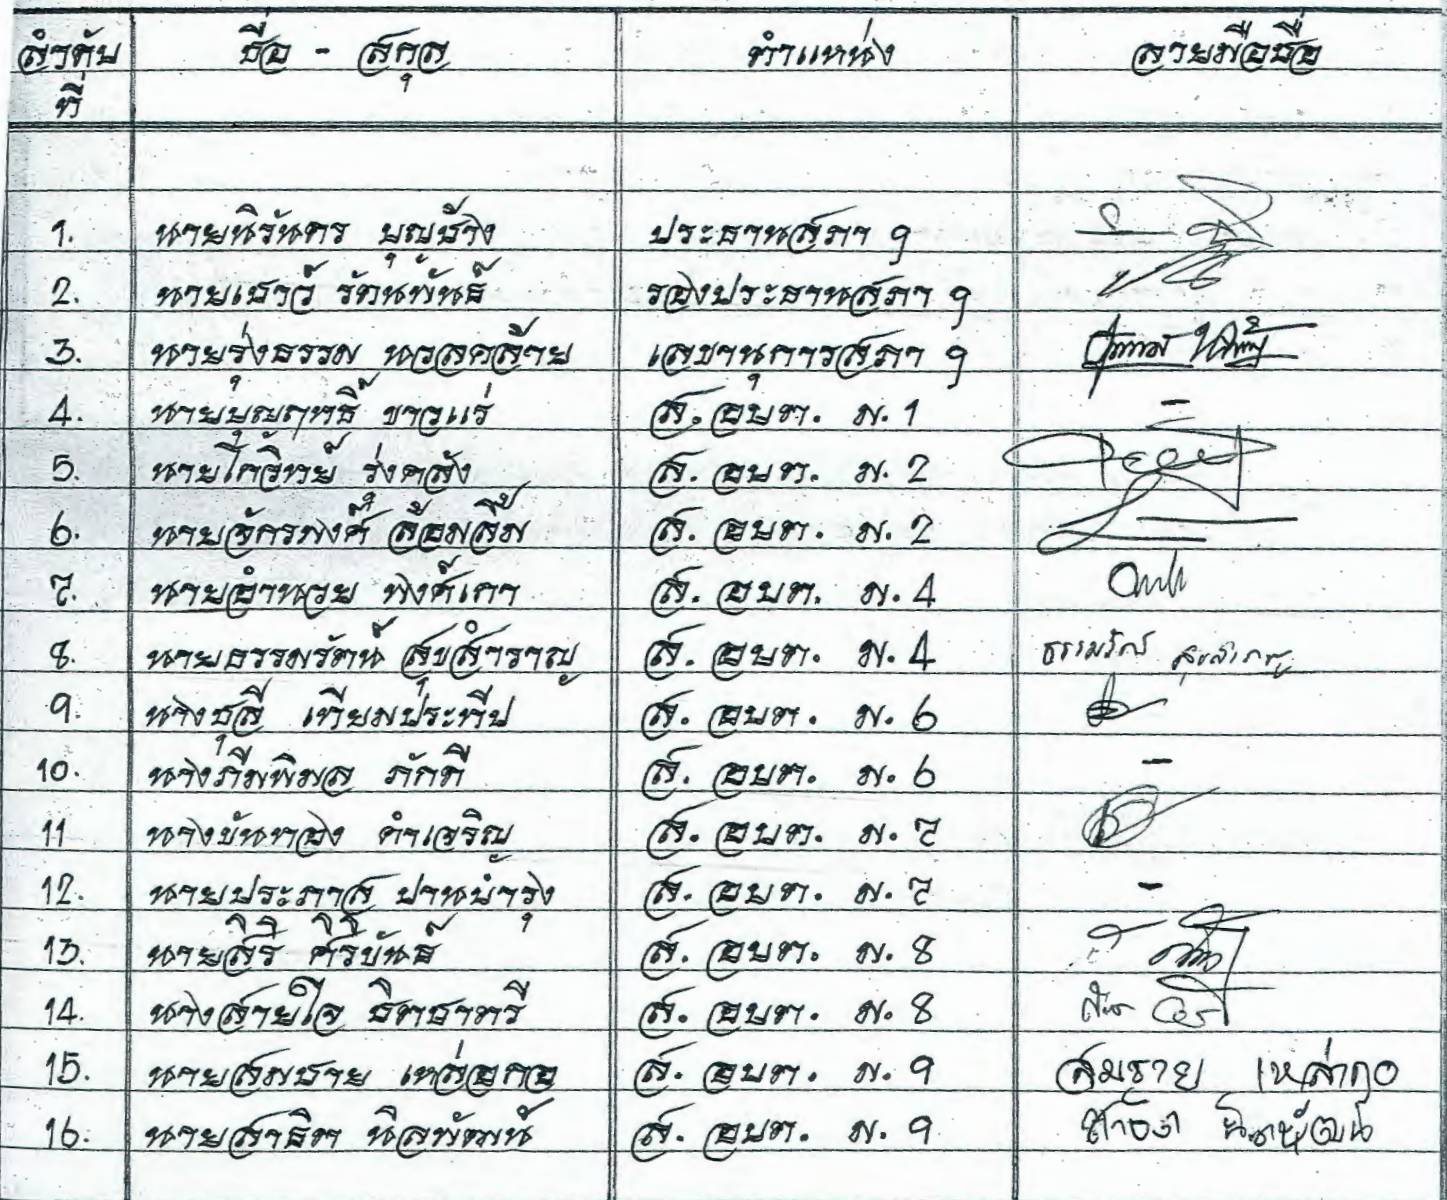 ลำดับที่ ชื่อ - สกุล ตำแหน่ง ลายมือชื่อ
1. นายนิรันดร บุญช่วง ประธานสภา ฯ
2. นายเชาว์ รัตนพันธ์ รองประธานสภา ฯ
3. นายรุ่งธรรม นวลคล้าย เลขานุการสภา ฯ
4. นายบุญฤทธิ์ ขาวแร่ ส.อบต. ม. 1 -
5. นายโกวิทย์ รุ่งคลัง ส. อบต. ม. 2
6. นายจักรพงศ์ ล้อมลิ้ม ส. อบต. ม. 2
7. นายอำนวย พงศ์เภา ส. อบต. ม. 4
8. นายธรรมรัตน์ สุขสำราญ ส. อบต. ม. 4 ธรรมรัตน์ สุขสำราญ
9. นางชุลี เทียมประทีป ส. อบต. ม. 6
10. นางภิมพิมล ภักดี ส. อบต. ม. 6 -
11 นางขันทอง ดำเจริญ ส. อบต. ม. 7
12. นายประภาส ปานบำรุง ส. อบต. ม. 7 -
13. นายสิริ ศิริขันธ์ ส. อบต. ม. 8
14. นางสายใจ ธิตธาทรี ส. อบต. ม. 8
15. นายสมชาย เหล่อกอ ส. อบต. ม. 9 สมชาย เหล่ากอ
16. นายสาธิต นิลพัฒน์ ส. อบต. ม. 9 สาธิต นิลพัฒน์